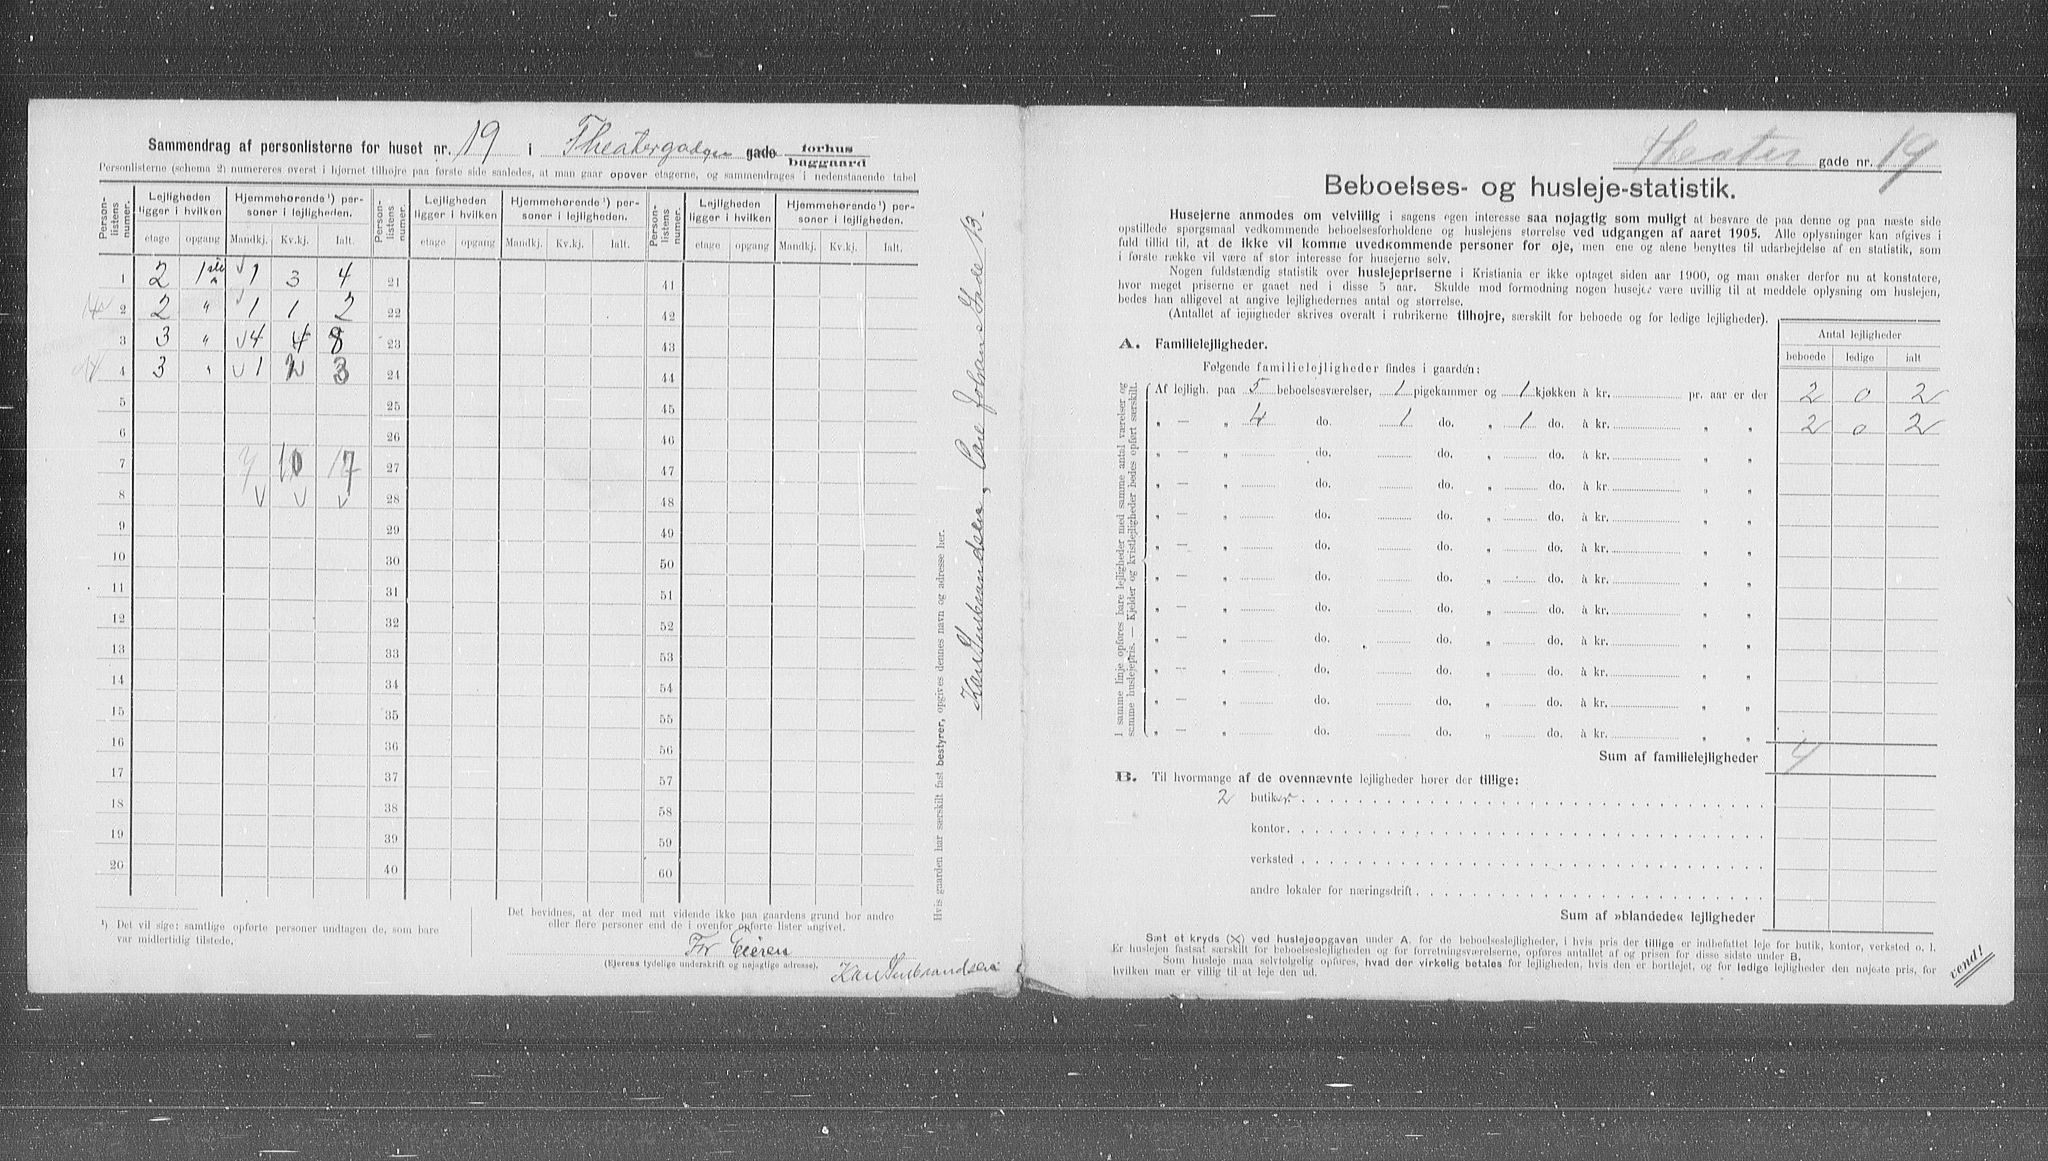 Sammendrag af personlisterne for huset nr. 19 i Theatergaden gade forhus baggaard
Personlisterne (schema 2) numereres øverst i hjørnet tilhøjre paa første side saaledes, at man gaar opover etagerne, og sammendrages i nedenstaaende tabel
Person-listens numer. Lejligheden ligger i hvilken Hjemmehørende¹) personer i lejligheden. Person-listens numer. Lejligheden ligger i hvilken Hjemmehørende¹) personer i lejligheden. Person-listens numer. Lejligheden ligger i hvilken Hjemmehørende¹) personer i lejligheden.
etage opgang Mandkj. Kv.kj. Ialt. etage opgang Mandkj. Kv.kj. Ialt. etage opgang Mandkj. Kv.kj. Ialt.
1 2 1 1 3 4 21 41
2 2 " 1 1 2 22 42
3 3 " 4 4 8 23 43
4 3 " 1 2 3 24 44
5 25 45
6 26 46
7 7 10 17 27 47
8 28 48
9 29 49
10 30 50
11 31 51
12 32 52
13 33 53
14 34 54
15 35 55
16 36 56
17 37 57
18 38 58
19 39 59
20 40 60
¹) Det vil sige: samtlige opførte personer undtagen de, som bare
var midlertidig tilstede.
Det bevidnes, at der med mit vidende ikke paa gaardens grund bor andre
eller flere personer end de i ovenfor opførte lister angivet.
For Eieren
(Ejerens tydelige underskrift og nøjagtige adresse).
Karl Gulbrandsen
Hvis gaarden har særskilt fast bestyrer, opgives dennes navn og adresse her.
Karl Gulbrandsen, Carl Johans Gade 13
Theater gade nr. 19
Beboelses- og husleje-statistik.
Husejerne anmodes om velvillig i sagens egen interesse saa nøjagtig som muligt at besvare de paa denne og paa næste side
opstillede spørgsmaal vedkommende beboelsesforholdene og huslejens størrelse ved udgangen af aaret 1905. Alle oplysninger kan afgives i
fuld tillid til, at de ikke vil komme uvedkommende personer for øje, men ene og alene benyttes til udarbejdelse af en statistik, som
i første række vil være af stor interesse for husejerne selv.
Nogen fuldstændig statistik over huslejepriserne i Kristiania er ikke optaget siden aar 1900, og man ønsker derfor nu at konstatere,
hvor meget priserne er gaaet ned i disse 5 aar. Skulde mod formodning nogen husejer være uvillig til at meddele oplysning om huslejen,
bedes han alligevel at angive lejlighedernes antal og størrelse.
(Antallet af lejligheder skrives overalt i rubrikerne tilhøjre, særskilt for beboede og for ledige lejligheder).
Antal lejligheder
beboede ledige ialt
A. Familielejligheder.
Følgende familielejligheder findes i gaarden:
I samme linje opføres bare lejligheder med samme antal værelser og
samme huslejepris. — Kjelder og kvistlejligheder bedes opført særskilt.
Af lejligh. paa 5 beboelsesværelser, 1 pigekammer og 1 kjøkken à kr. pr. aar er der 2 0 2
" — " 4 do. 1 do. " 1 do. à kr. " " 2 0 2
" — " do. do. " do. à kr. " "
" — " do. do. " do. à kr. " "
" — " do. do. " do. à kr. " "
" — " do. do. " do. à kr. " "
" — " do. do. " do. à kr. " "
" — " do. do. " do. à kr. " "
" — " do. do. " do. à kr. " "
" — " do. do. " do. à kr. " "
" — " do. do. " do. à kr. " "
" — " do. do. " do. à kr. " "
Sum af familielejligheder 4
B. Til hvormange af de ovennævnte lejligheder hører der tillige:
2 butiker
kontor
verksted
andre lokaler for næringsdrift
Sum af »blandede« lejligheder
Sæt et kryds (X) ved huslejeopgaven under A. for de beboelseslejligheder, i hvis pris der tillige er indbefattet leje for butik, kontor, verksted o. l.
Er huslejen fastsat særskilt for beboelseslejligheden og for forretningsværelserne, opføres antallet af og prisen for disse sidste under B.
Som husleje maa selvfølgelig opføres, hvad der virkelig betales for lejligheden, hvis den er bortlejet, og for ledige lejligheder den nøjeste pris, for
hvilken man er villig til at leje den ud.
vend!